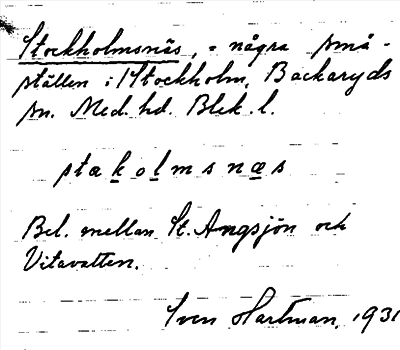 Stockholmsnäs, = några små-
ställen i Stockholm, Backaryds
sn. Med. hd. Blek. l.
stakolmsnæs
Bel. mellan St. Angsjön och
Vitavatten.
Sven Hartman, 1931